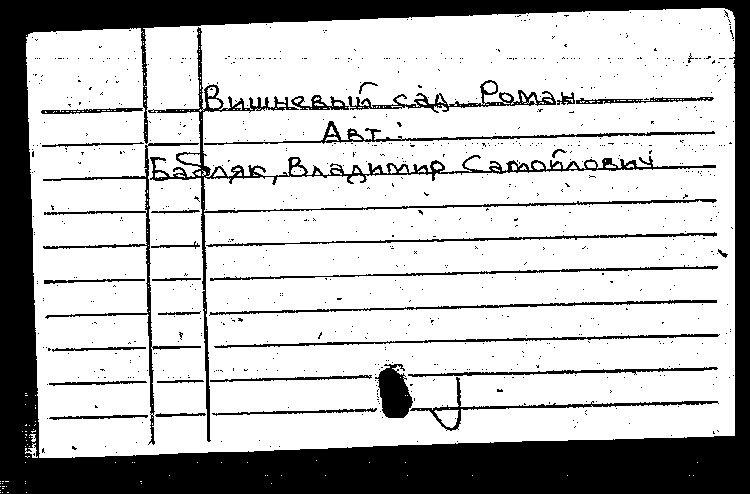 Вишневый сад. Роман.
Авт.:
Бабляк, Владимир Самойлович